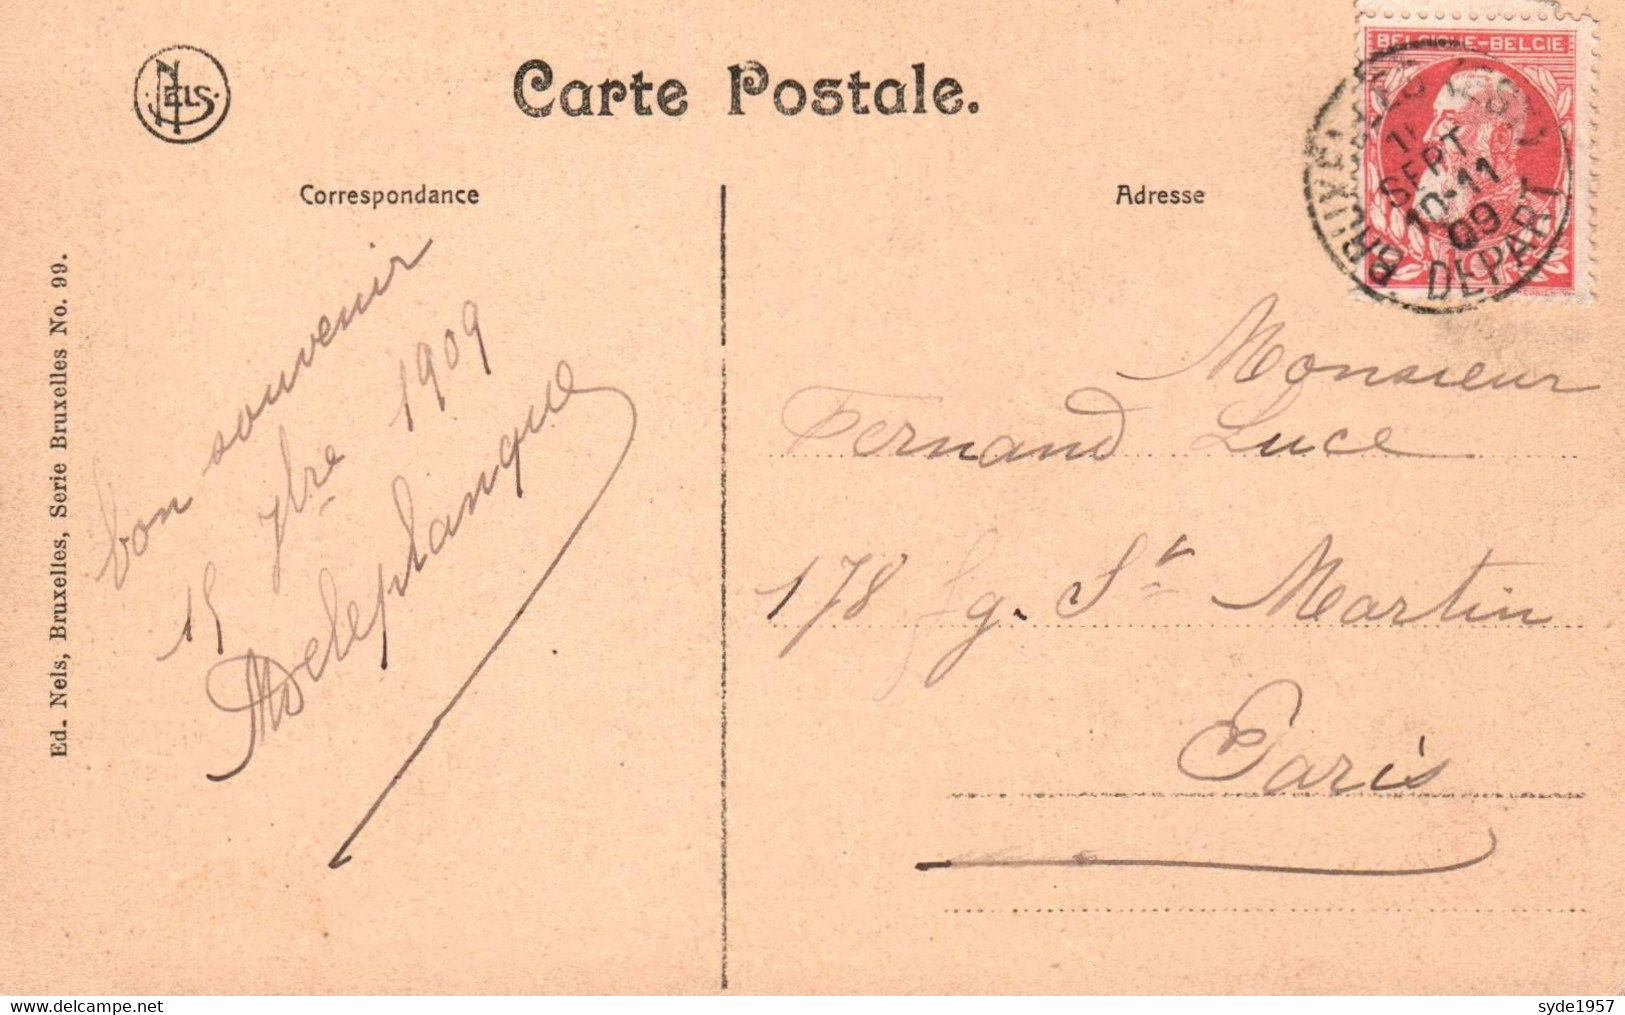 NELS
Carte Postale.
Correspondance
Adresse
BELGIQUE-BELGIE
SEPT
10-11
09
DEPART
Ed. Nels, Bruxelles, Serie Bruxelles No. 99.
bon souvenir
15 7bre 1909
Monsieur
Fernand Luce
178 fg. St Martin
Paris
delcampe.net
syde1957